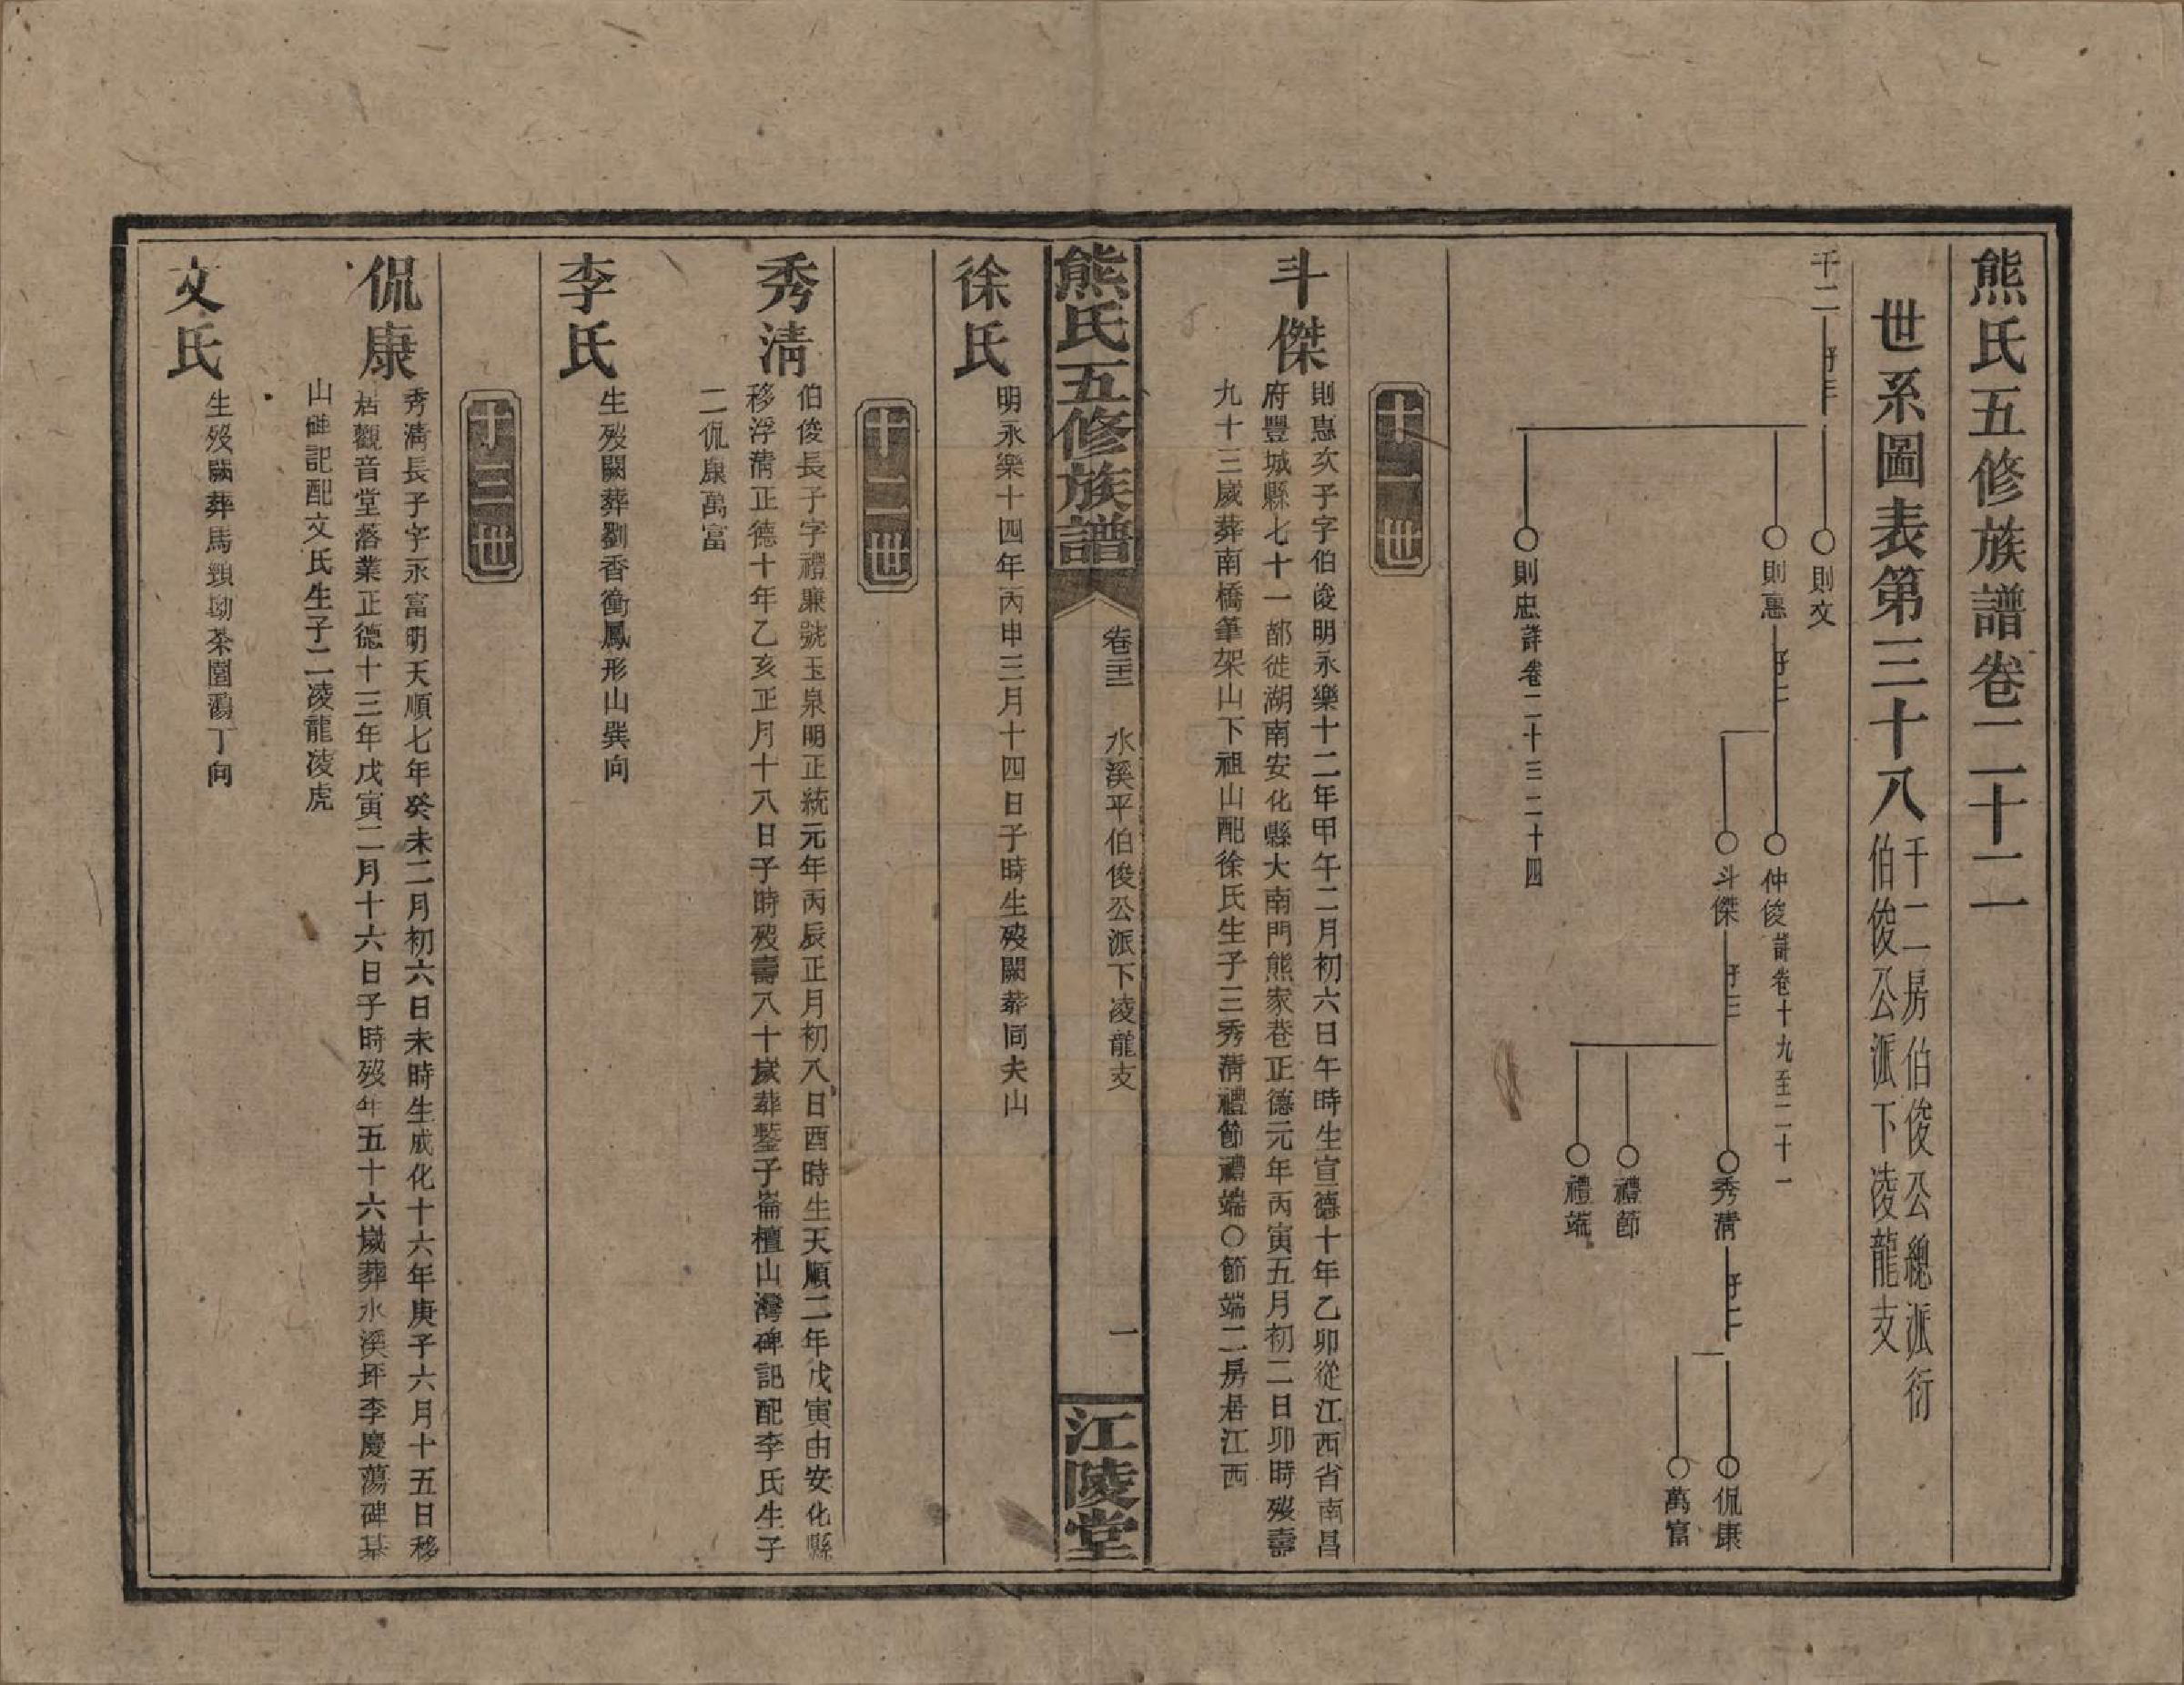 熊氏五修族譜卷二十二
世系圖表第三十八
千二房伯俊公總派衍
伯俊公派下凌龍支
千二
子三
則文
則惠
子二
仲俊 詳卷十九至二十一
斗傑
子三
秀清
子二
侃康
萬富
禮節
禮端
則忠 詳卷二十三二十四
十一世
斗傑
則惠次子字伯俊明永樂十二年甲午二月初六日午時生宣德十年乙卯從江西省南昌
府豐城縣七十一都徙湖南安化縣大南門熊家巷正德元年丙寅五月初二日卯時歿壽
九十三歲葬南橋筆架山下祖山配徐氏生子三秀清禮節禮端○節端二房居江西
熊氏五修族譜
卷二十二 水溪平伯俊公派下凌龍支
一
江陵堂
徐氏
明永樂十四年丙申三月十四日子時生歿闕葬同夫山
十二世
秀清
伯俊長子字禮廉號玉泉明正統元年丙辰正月初八日酉時生天順二年戊寅由安化縣
移浮清正德十年乙亥正月十八日子時歿壽八十歲葬鏨子崙檀山灣碑記配李氏生子
二侃康萬富
李氏
生歿闕葬劉香衝鳳形山巽向
十三世
侃康
秀清長子字永富明天順七年癸未二月初六日未時生成化十六年庚子六月十五日移
居觀音堂落業正德十三年戊寅二月十六日子時歿年五十六歲葬水溪坪李慶蕩碑墓
山碑記配文氏生子二凌龍凌虎
文氏
生歿闕葬馬頸坳茶園灣丁向